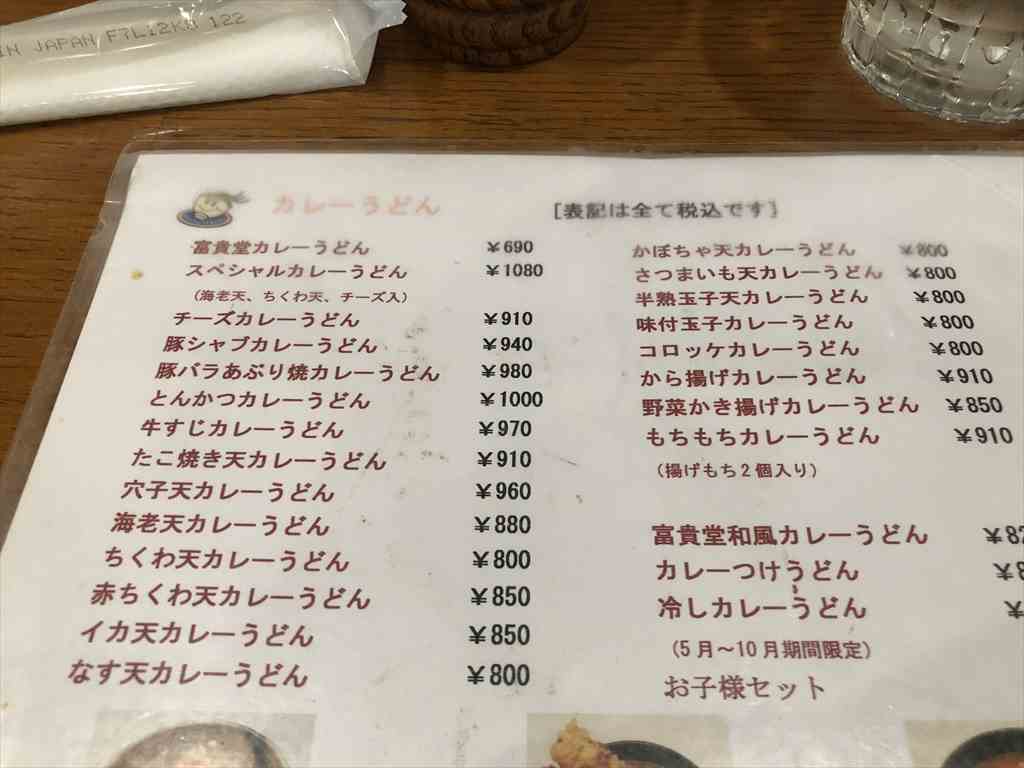 IN JAPAN F7L12K 122
カレーうどん
[表記は全て税込です]
富貴堂カレーうどん ¥690
スペシャルカレーうどん ¥1080
(海老天、ちくわ天、チーズ入)
チーズカレーうどん ¥910
豚シャブカレーうどん ¥940
豚バラあぶり焼カレーうどん ¥980
とんかつカレーうどん ¥1000
牛すじカレーうどん ¥970
たこ焼き天カレーうどん ¥910
穴子天カレーうどん ¥960
海老天カレーうどん ¥880
ちくわ天カレーうどん ¥800
赤ちくわ天カレーうどん ¥850
イカ天カレーうどん ¥850
なす天カレーうどん ¥800
かぼちゃ天カレーうどん ¥800
さつまいも天カレーうどん ¥800
半熟玉子天カレーうどん ¥800
味付玉子カレーうどん ¥800
コロッケカレーうどん ¥800
から揚げカレーうどん ¥910
野菜かき揚げカレーうどん ¥850
もちもちカレーうどん ¥910
(揚げもち2個入り)
富貴堂和風カレーうどん ¥82
カレーつけうどん ¥8
冷しカレーうどん ¥
(5月～10月期間限定)
お子様セット